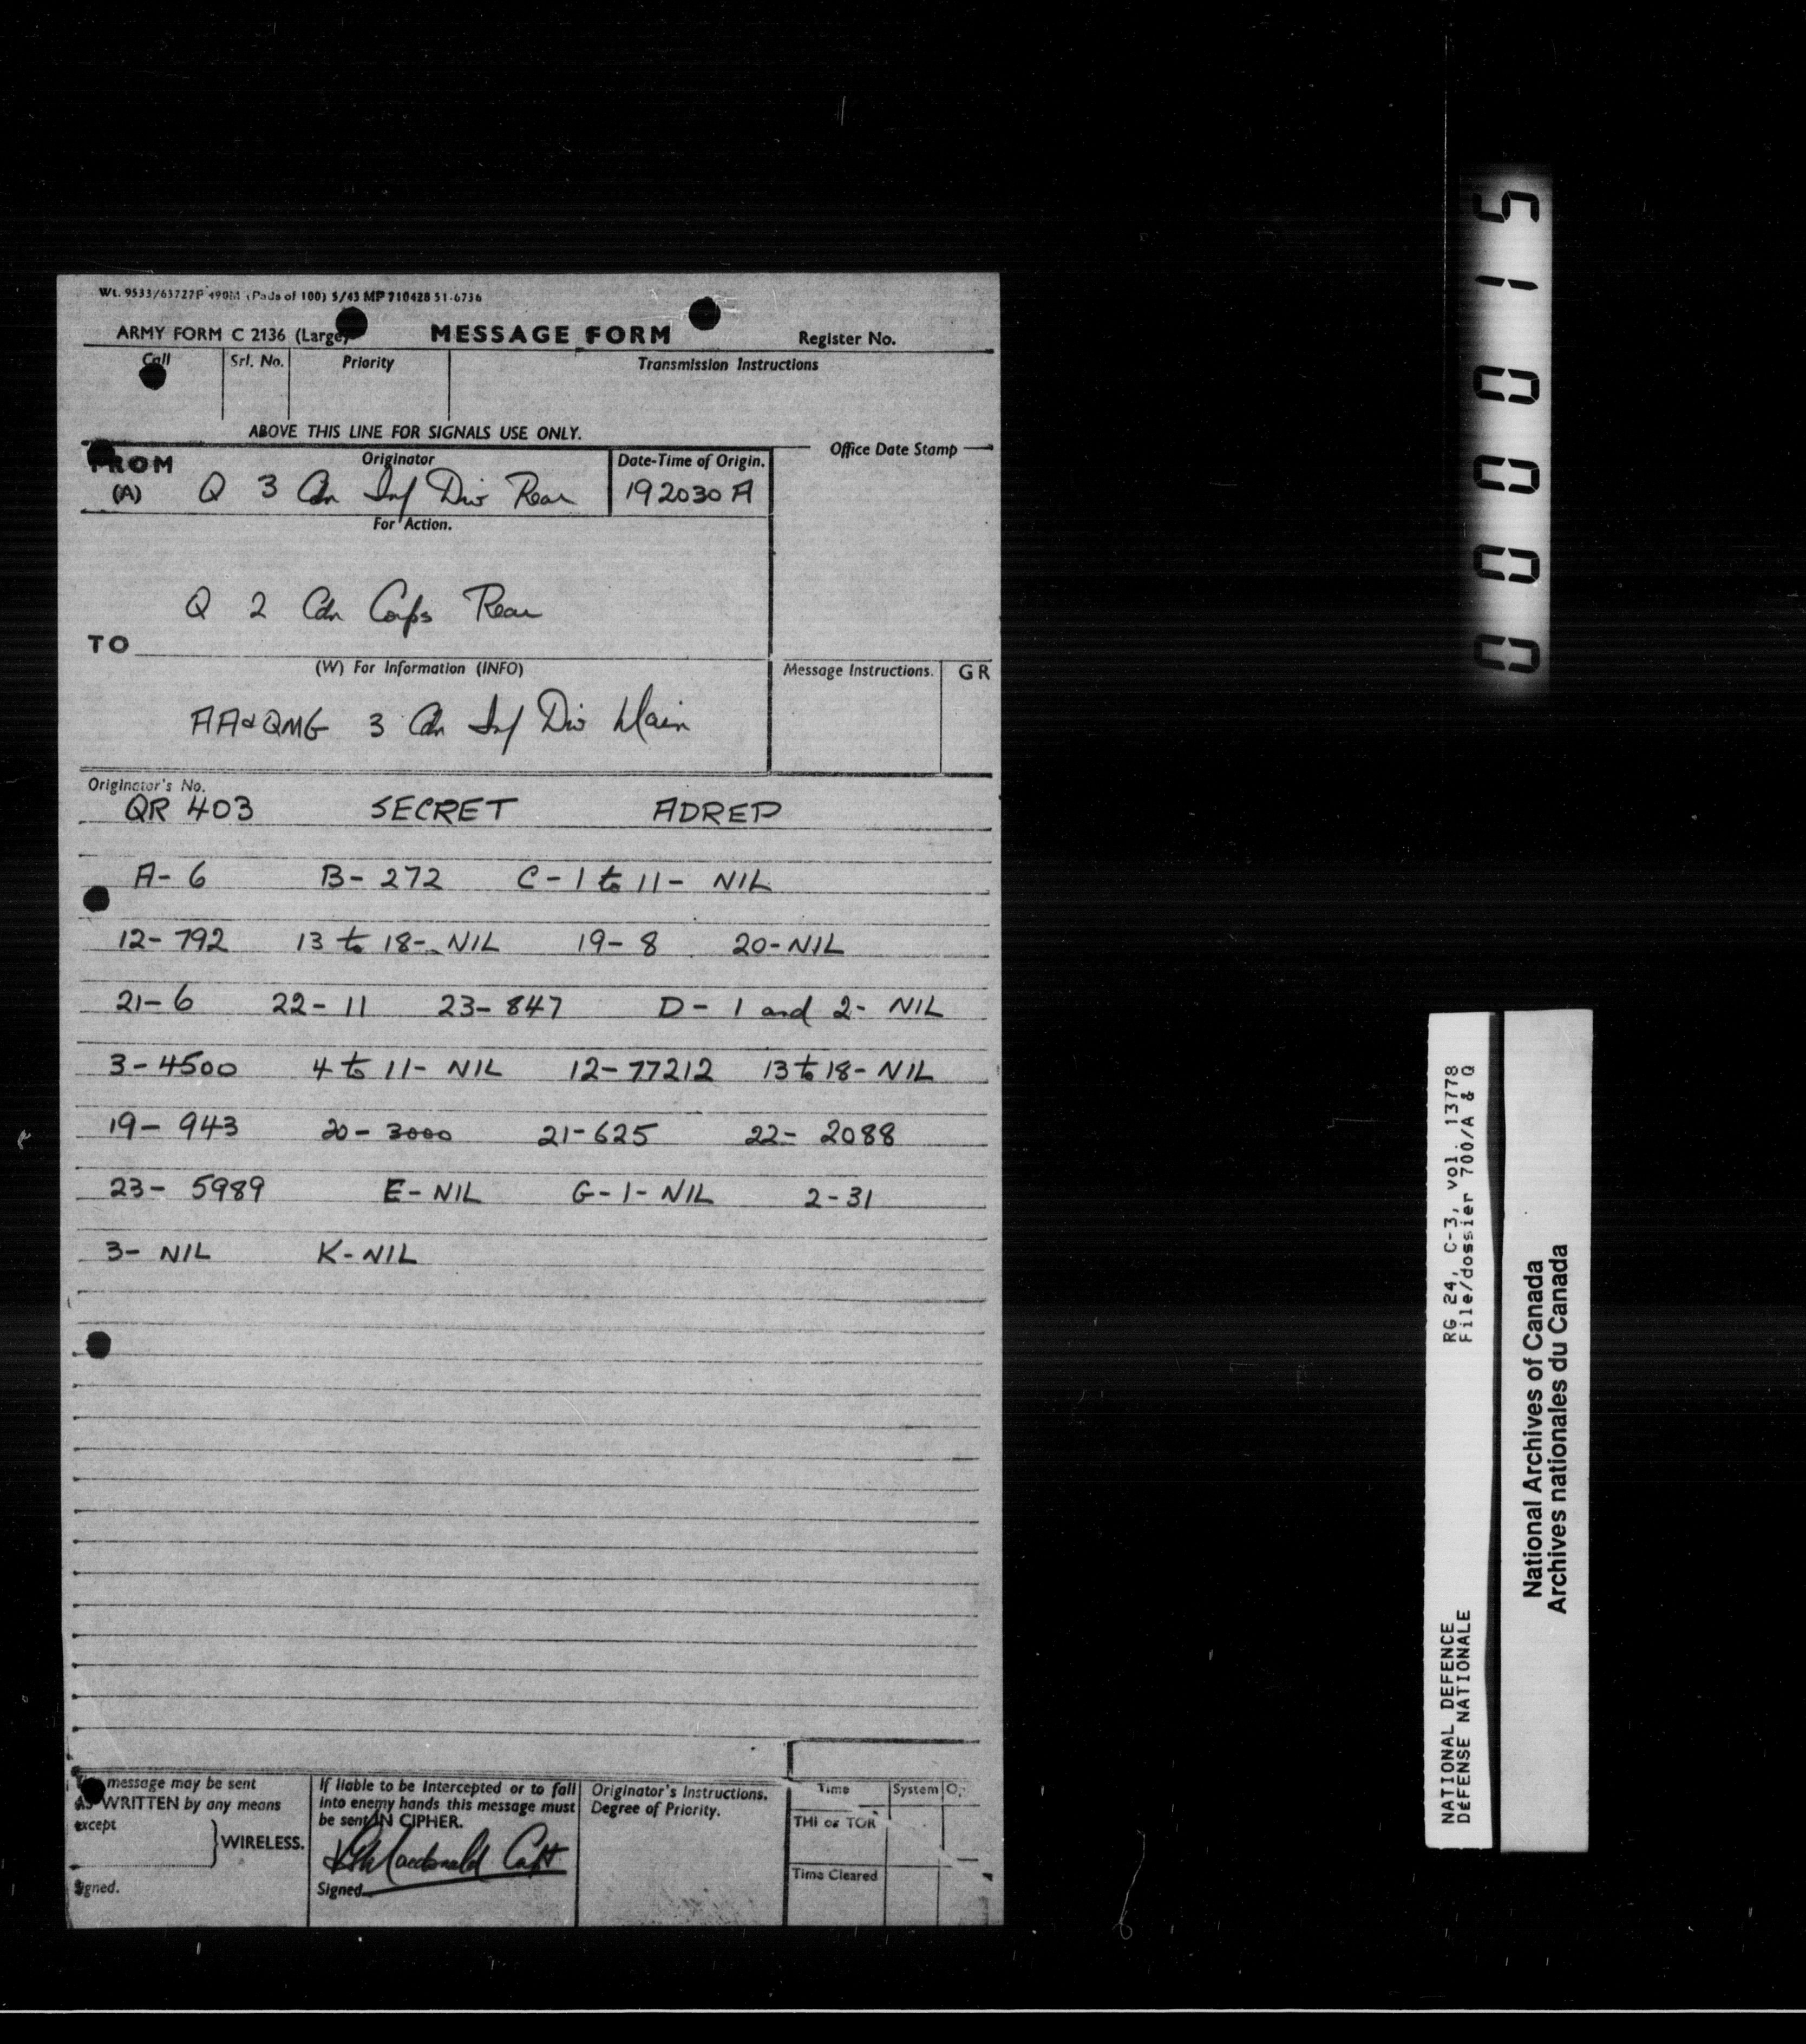 Wt. 9533/63727P 490M (Pads of 100) 5/43 MP 710428 51-6736
ARMY FORM C 2136 (Large) MESSAGE FORM Register No.
Call Srl. No. Priority Transmission Instructions
ABOVE THIS LINE FOR SIGNALS USE ONLY.
Office Date Stamp
FROM Originator Date-Time of Origin.
(A) Q 3 Cdn Inf Div Rear 192030 A
For Action.
Q 2 Cdn Corps Rear
TO
(W) For Information (INFO) Message Instructions. GR
AA & QMG 3 Cdn Inf Div Main
Originator's No.
QR 403 SECRET ADREP
A- 6 B- 272 C- 1 to 11- NIL
12- 792 13 to 18- NIL 19- 8 20- NIL
21- 6 22- 11 23- 847 D- 1 and 2- NIL
3- 4500 4 to 11- NIL 12- 77212 13 to 18- NIL
19- 943 20- 3000 21- 625 22- 2088
23- 5989 E- NIL G- 1- NIL 2- 31
3- NIL K- NIL
message may be sent
AS WRITTEN by any means
except
WIRELESS.
Signed.
If liable to be intercepted or to fall
into enemy hands this message must
be sent IN CIPHER.
Macdonald Capt
Signed
Originator's Instructions.
Degree of Priority.
Time System
THI or TOR
Time Cleared
000015
RG 24, C-3, vol. 13778
File/dossier 700/A & Q
NATIONAL DEFENCE
DÉFENSE NATIONALE
National Archives of Canada
Archives nationales du Canada